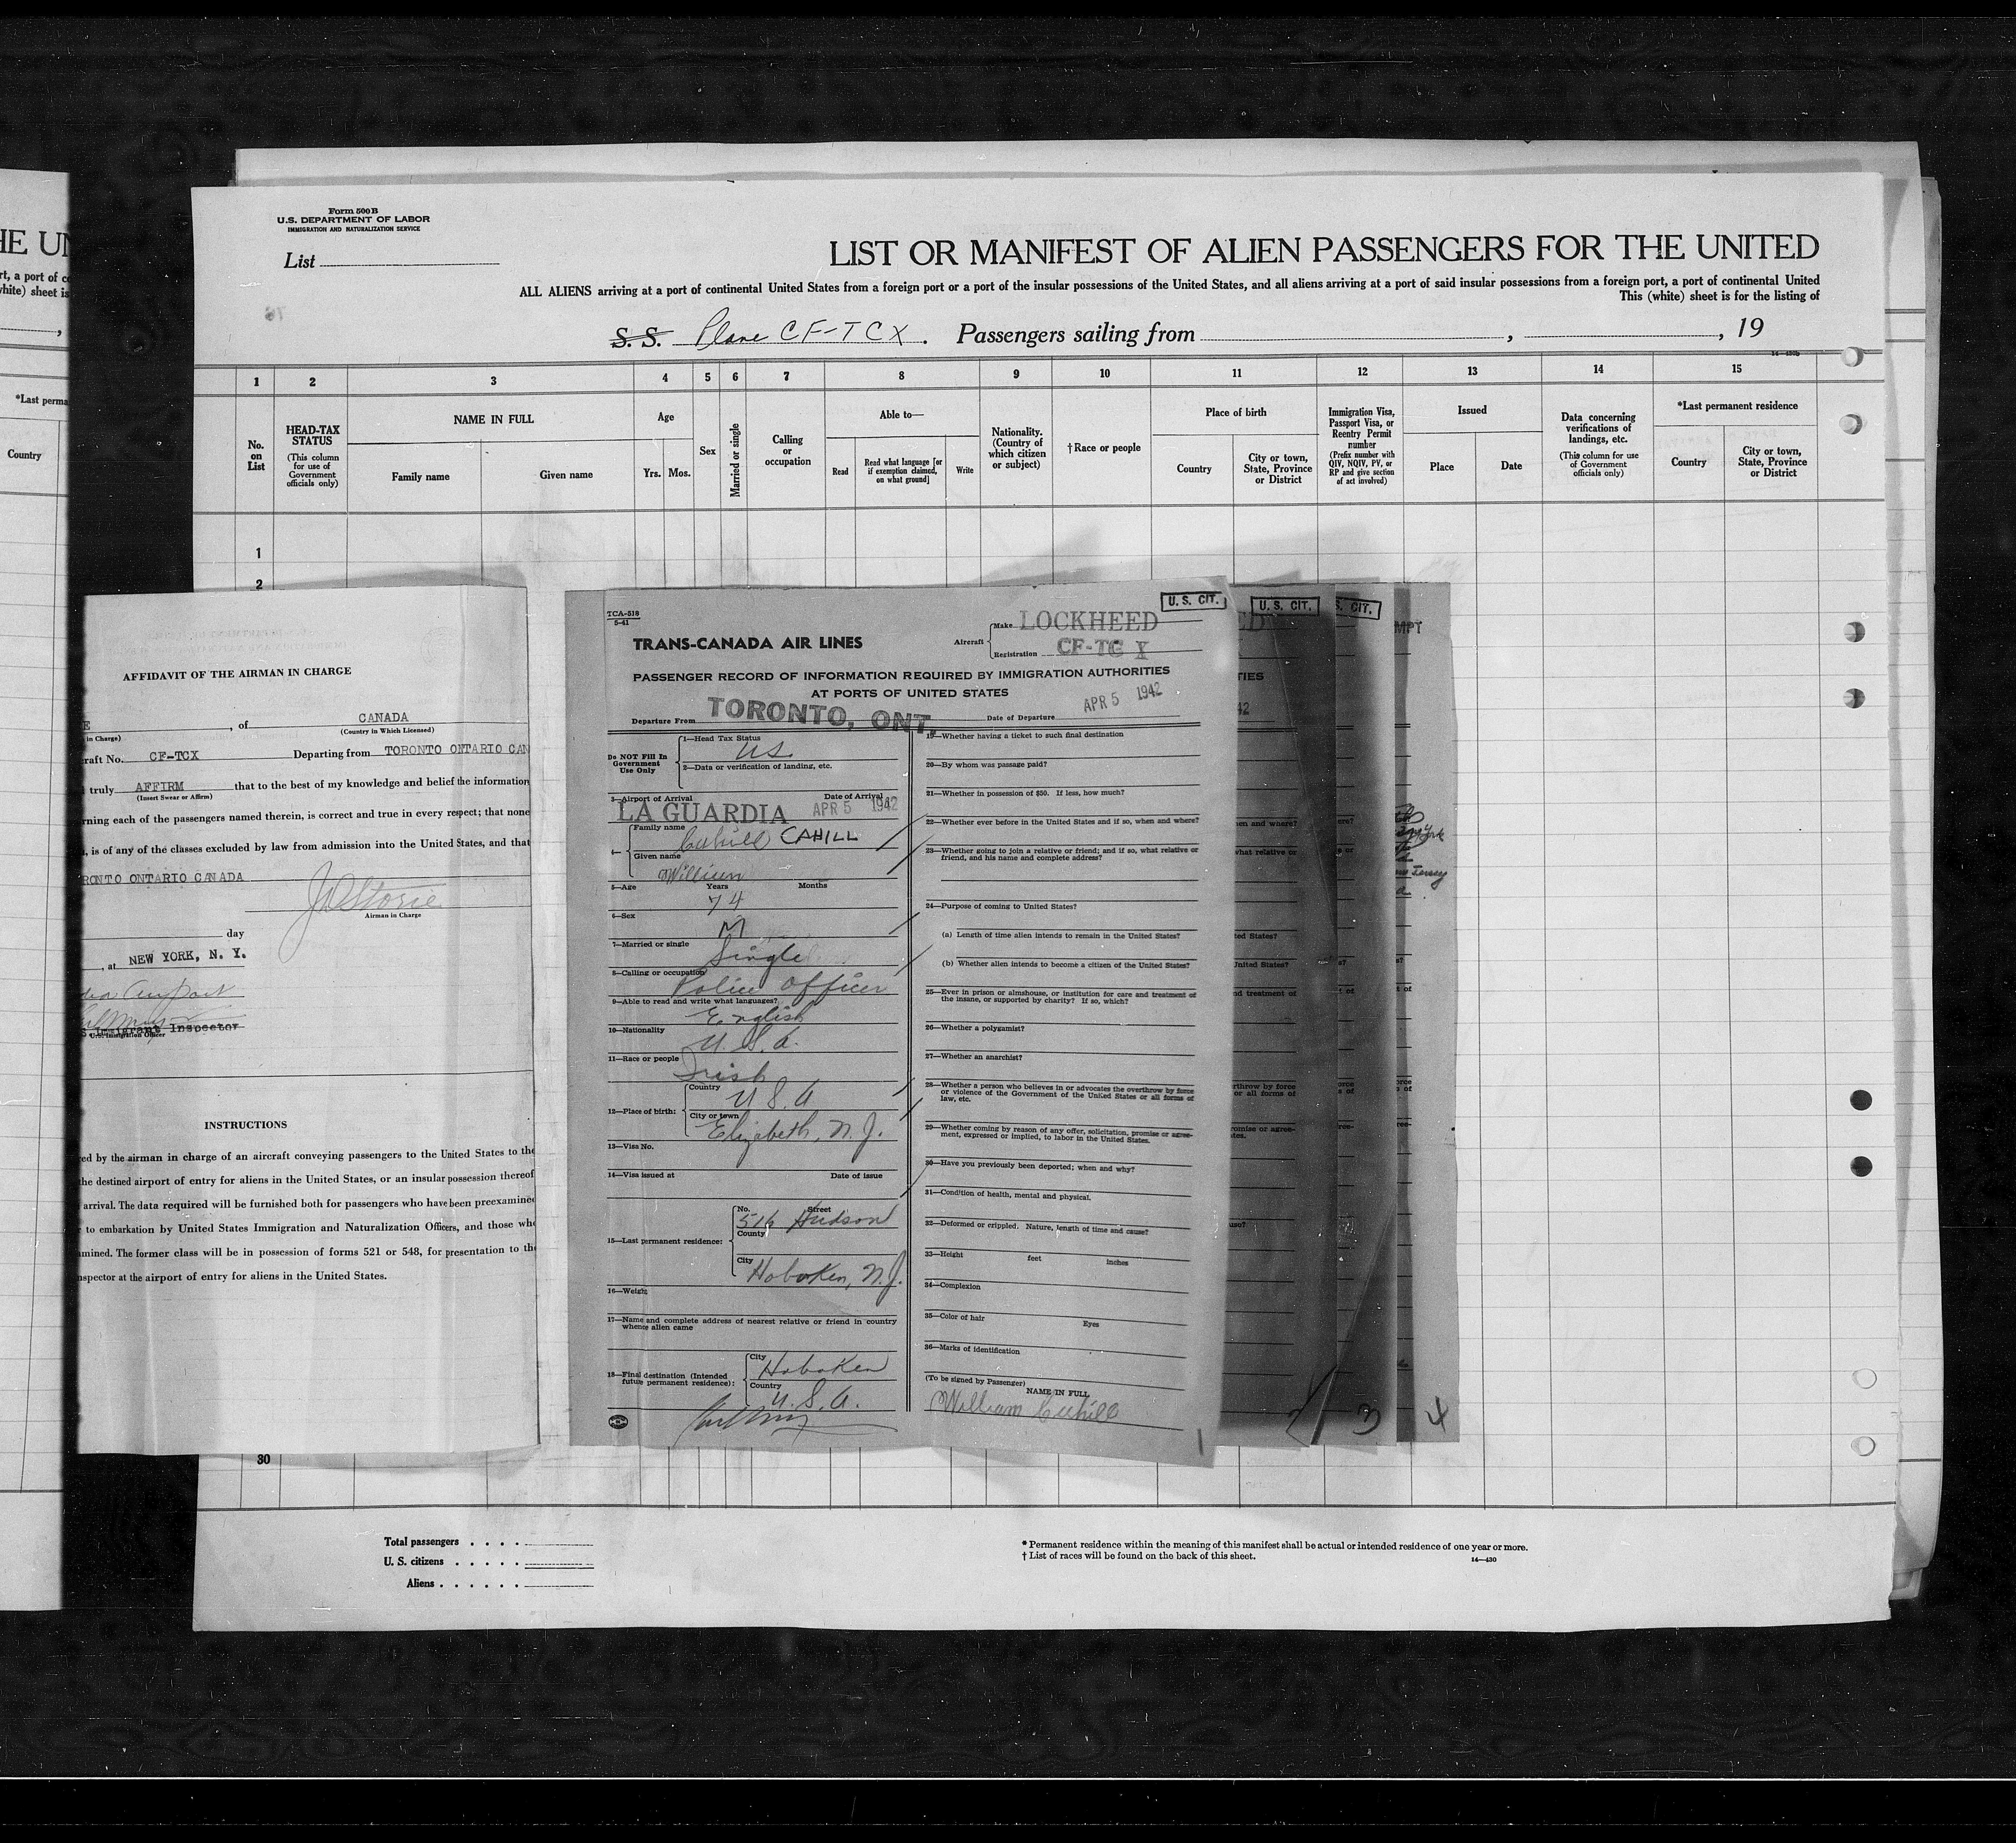 HE UN
rt, a port of co
white) sheet is
*Last perma
Country
Form 500 B
U.S. DEPARTMENT OF LABOR
IMMIGRATION AND NATURALIZATION SERVICE
List
LIST OR MANIFEST OF ALIEN PASSENGERS FOR THE UNITED
ALL ALIENS arriving at a port of continental United States from a foreign port or a port of the insular possessions of the United States, and all aliens arriving at a port of said insular possessions from a foreign port, a port of continental United
This (white) sheet is for the listing of
S. S. Plane CF-TCX. Passengers sailing from , , 19
14—430b
1 2 3 4 5 6 7 8 9 10 11 12 13 14 15
No. on List
HEAD-TAX STATUS
(This column for use of Government officials only)
NAME IN FULL
Family name
Given name
Age
Yrs. Mos.
Sex
Married or single
Calling or occupation
Able to—
Read
Read what language [or if exemption claimed, on what ground]
Write
Nationality. (Country of which citizen or subject)
†Race or people
Place of birth
Country
City or town, State, Province or District
Immigration Visa, Passport Visa, or Reentry Permit number
(Prefix number with QIV, NQIV, PV, or RP and give section of act involved)
Issued
Place
Date
Data concerning verifications of landings, etc.
(This column for use of Government officials only)
*Last permanent residence
Country
City or town, State, Province or District
1
2
AFFIDAVIT OF THE AIRMAN IN CHARGE
E , of CANADA
in Charge) (Country in Which Licensed)
raft No. CF-TCX Departing from TORONTO ONTARIO CAN
truly AFFIRM that to the best of my knowledge and belief the information
(Insert Swear or Affirm)
rning each of the passengers named therein, is correct and true in every respect; that none
, is of any of the classes excluded by law from admission into the United States, and that
RONTO ONTARIO CANADA
J D Storie
Airman in Charge
day
, at NEW YORK, N. Y.
dia Airport
S Immigrant Inspector
U.S. Immigration Officer
INSTRUCTIONS
red by the airman in charge of an aircraft conveying passengers to the United States to the
the destined airport of entry for aliens in the United States, or an insular possession thereof
arrival. The data required will be furnished both for passengers who have been preexamined
to embarkation by United States Immigration and Naturalization Officers, and those who
amined. The former class will be in possession of forms 521 or 548, for presentation to the
nspector at the airport of entry for aliens in the United States.
TCA-518
5-41
U. S. CIT.
TRANS-CANADA AIR LINES
Aircraft
Make LOCKHEED
Registration CF-TC X
PASSENGER RECORD OF INFORMATION REQUIRED BY IMMIGRATION AUTHORITIES
AT PORTS OF UNITED STATES
Departure From TORONTO, ONT. Date of Departure APR 5 1942
Do NOT Fill In Government Use Only
1—Head Tax Status
US
2—Data or verification of landing, etc.
3—Airport of Arrival Date of Arrival
LA GUARDIA APR 5 1942
4— Family name Cahill CAHILL
Given name
William
5—Age Years Months
74
6—Sex
M
7—Married or single
Single
8—Calling or occupation
Police Officer
9—Able to read and write what languages?
English
10—Nationality
U. S. A.
11—Race or people
Irish
12—Place of birth:
Country
U S. A
City or town
Elizabeth, N. J.
13—Visa No.
14—Visa issued at Date of issue
15—Last permanent residence:
No. Street
516 Hudson
County
City
Hoboken, N. J.
16—Weight
17—Name and complete address of nearest relative or friend in country
whence alien came
18—Final destination (Intended
future permanent residence):
City
Hoboken
Country
U. S. A.
19—Whether having a ticket to such final destination
20—By whom was passage paid?
21—Whether in possession of $50. If less, how much?
22—Whether ever before in the United States and if so, when and where?
23—Whether going to join a relative or friend; and if so, what relative or
friend, and his name and complete address?
24—Purpose of coming to United States?
(a) Length of time alien intends to remain in the United States?
(b) Whether alien intends to become a citizen of the United States?
25—Ever in prison or almshouse, or institution for care and treatment of
the insane, or supported by charity? If so, which?
26—Whether a polygamist?
27—Whether an anarchist?
28—Whether a person who believes in or advocates the overthrow by force
or violence of the Government of the United States or all forms of
law, etc.
29—Whether coming by reason of any offer, solicitation, promise or agree-
ment, expressed or implied, to labor in the United States.
30—Have you previously been deported; when and why?
31—Condition of health, mental and physical.
32—Deformed or crippled. Nature, length of time and cause?
33—Height feet inches
34—Complexion
35—Color of hair Eyes
36—Marks of identification
(To be signed by Passenger)
NAME IN FULL
William Cahill
1
U. S. CIT.
ED
TIES
42
en and where?
what relative or
ted States?
United States?
nd treatment of
rthrow by force
or all forms of
romise or agree-
ates.
use?
2
S. CIT.
3
MPT
York
Jersey
4
30
Total passengers
U. S. citizens
Aliens
* Permanent residence within the meaning of this manifest shall be actual or intended residence of one year or more.
† List of races will be found on the back of this sheet.
14—430